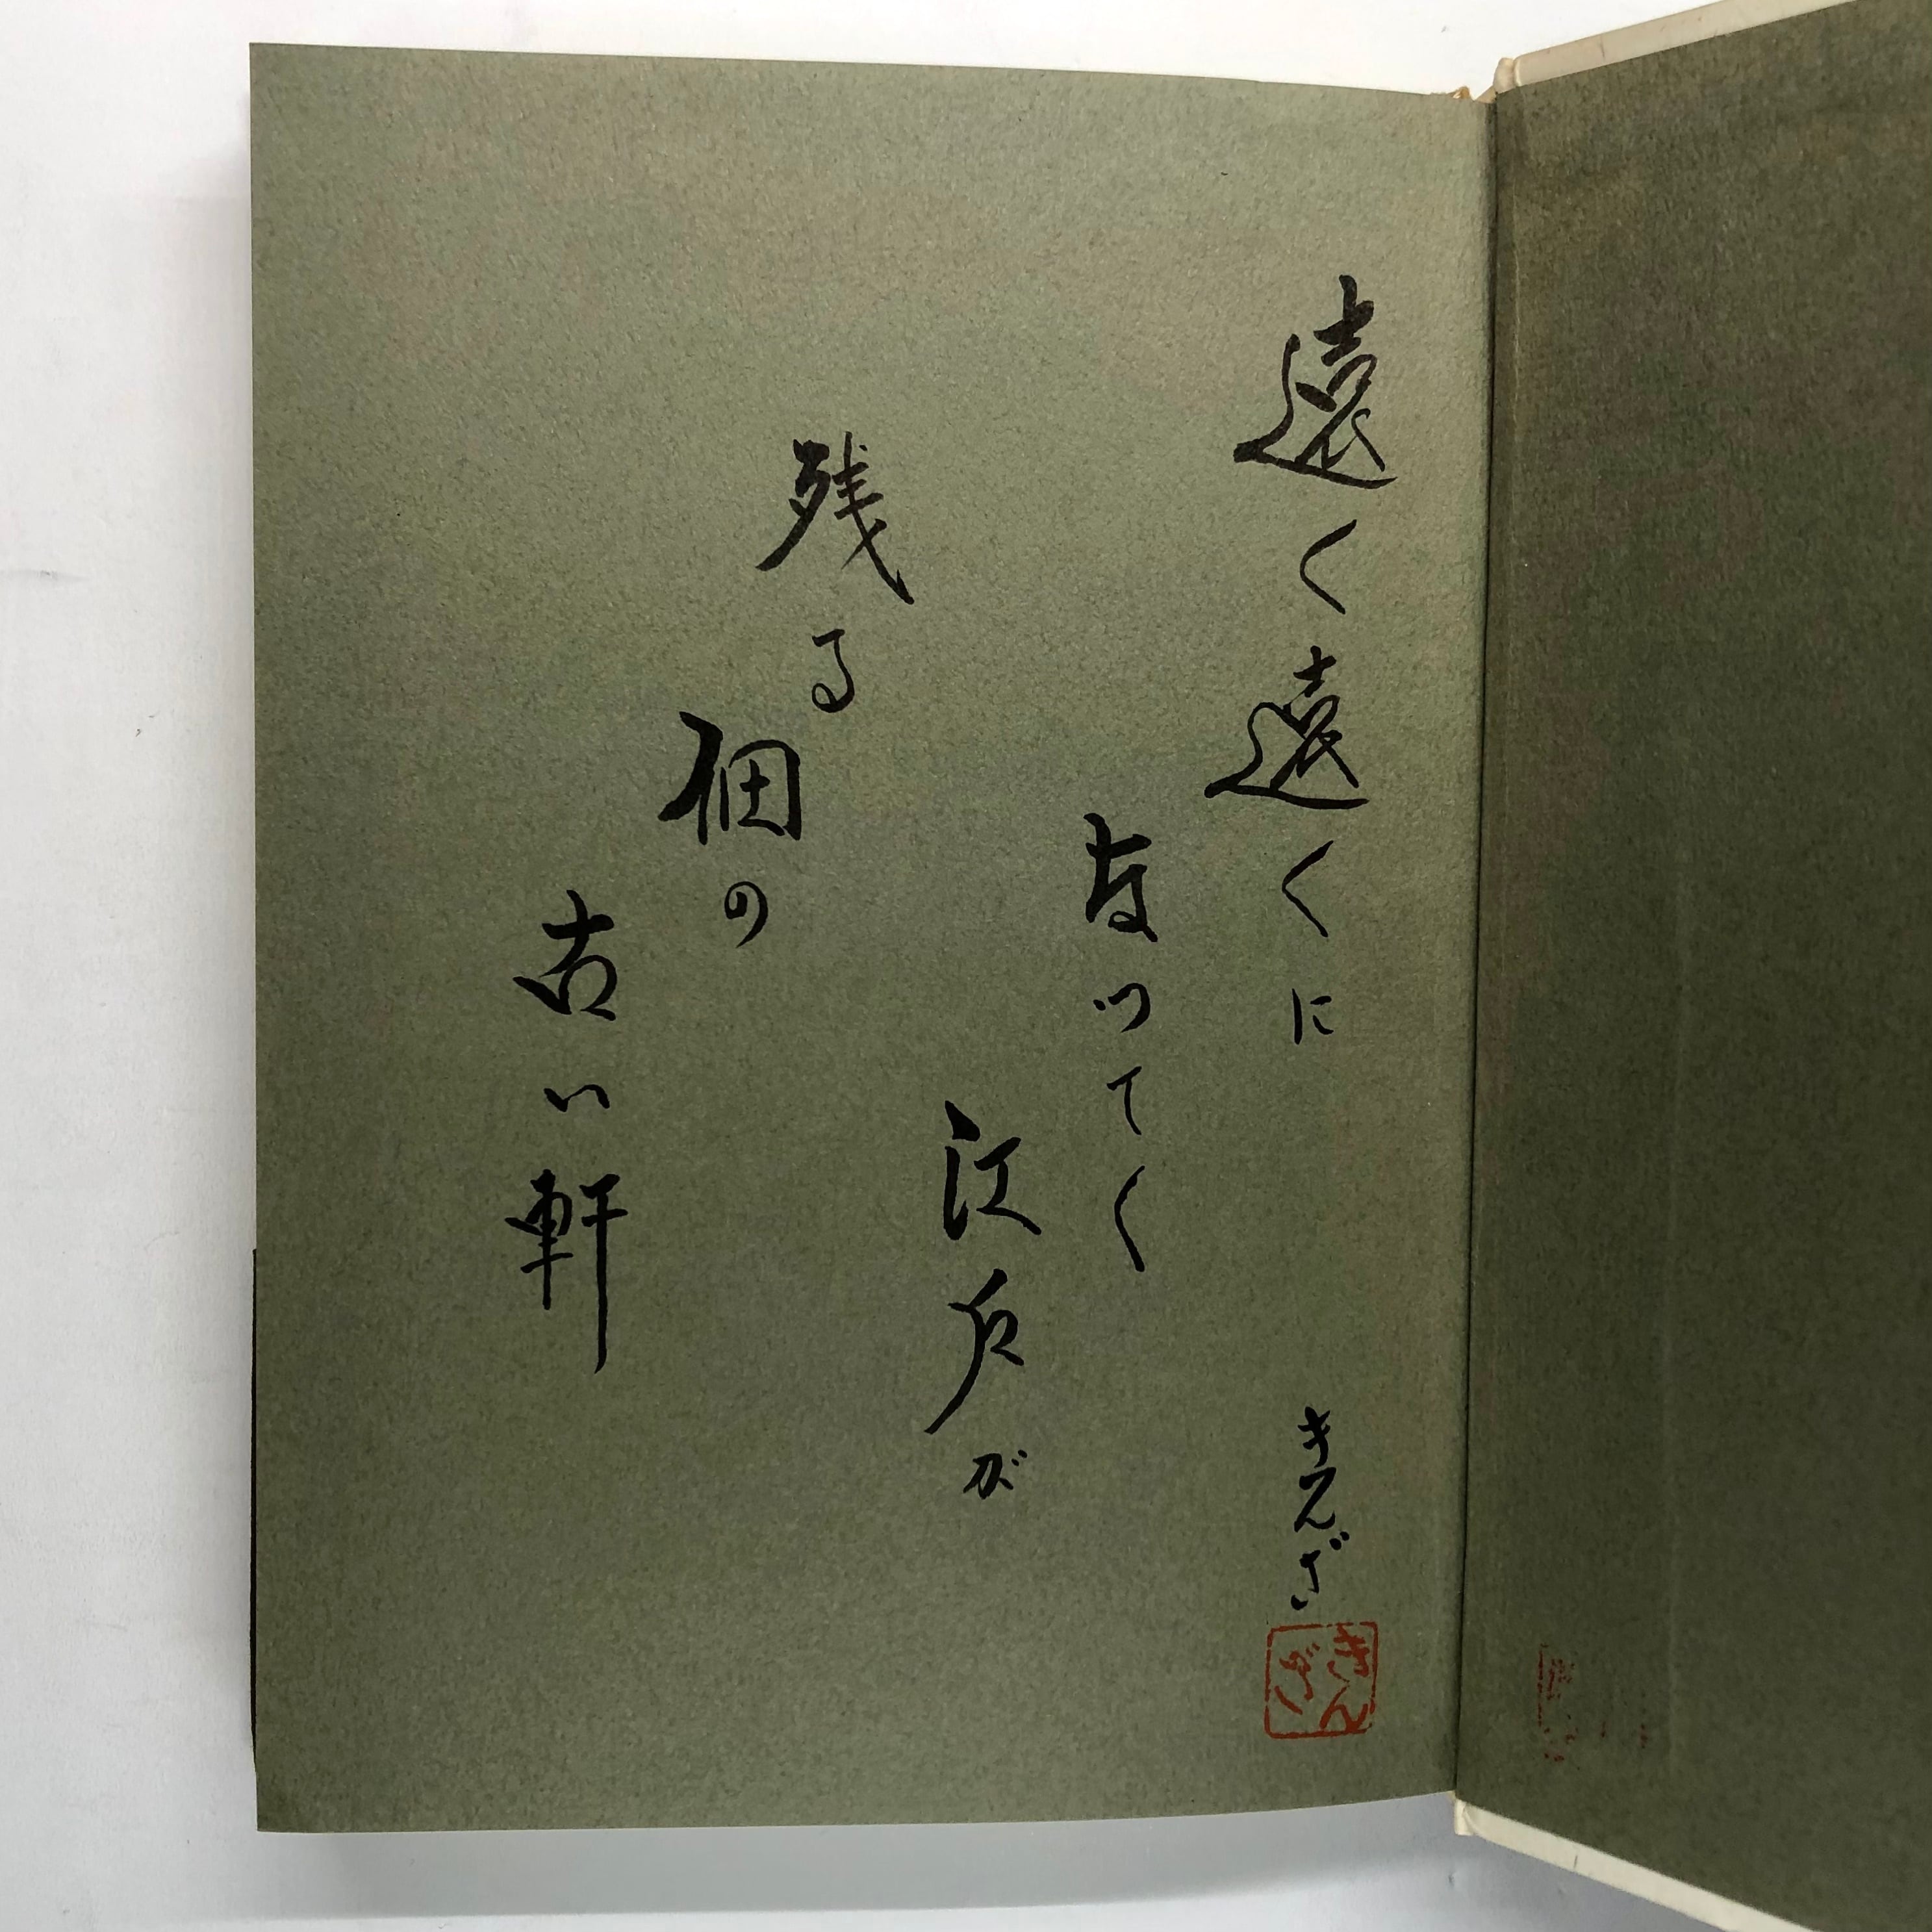 遠く遠くに
なつてく
江戸が
残る佃の
古い軒
きんざ
きんざ